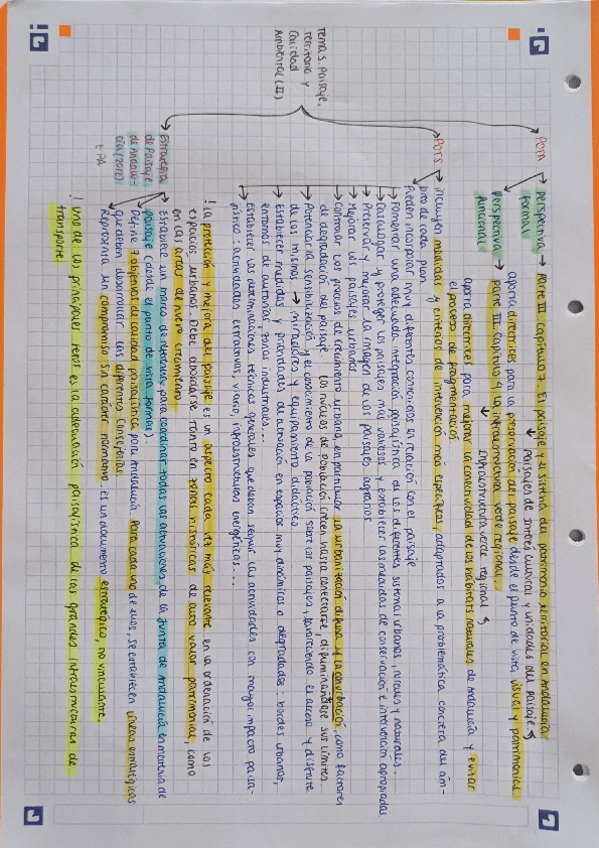 Tema 5. Paisaje,
territorio y
Calidad
Ambiental (II)
POTA
perspectiva formal → Parte III. Capítulo 7. El paisaje y el sistema del patrimonio territorial en Andalucía
↳ Paisajes de interés cultural y unidades del paisaje
aporta directrices para la preservación del paisaje desde el punto de vista visual y patrimonial
perspectiva funcional → parte III. Capítulo 4. La infraestructura verde regional.
↳ Infraestructura verde regional
aporta directrices para mejorar la conectividad de los hábitats naturales de Andalucía y evitar
el proceso de fragmentación
POTS
→ incluyen medidas y criterios de intervención más específicos, adaptados a la problemática concreta del ám-
bito de cada plan.
Pueden incorporar muy diferentes contenidos en relación con el paisaje
→ Fomentar una adecuada integración paisajística de los diferentes sistemas urbanos, rurales y naturales.
→ Salvaguardar y proteger los paisajes más valiosos y establecer las medidas de conservación e intervención apropiadas
→ Preservar y mejorar la imagen de los paisajes agrarios
→ Mejorar los paisajes urbanos
→ Controlar los procesos de crecimiento urbano, en particular la urbanización difusa y la conurbación, como factores
de degradación del paisaje. Los núcleos de población crecen hasta conectarse, difuminándose sus límites
→ Potenciar la sensibilización y el conocimiento de la población sobre los paisajes, favoreciendo el acceso y disfrute
de los mismos → miradores y equipamiento didáctico
→ Establecer medidas y prioridades de actuación en espacios muy dinámicos o degradados: bordes urbanos,
entornos de autovías, zonas industriales...
→ Establecer las determinaciones técnicas generales que deban seguir las actividades con mayor impacto paisa-
jístico: actividades extractivas, viario, infraestructuras energéticas...
! La protección y mejora del paisaje es un aspecto cada vez más relevante en la ordenación de los
espacios urbanos. Debe abordarse tanto en zonas históricas de alto valor patrimonial, como
en las áreas de nuevo crecimiento
Estrategia
de Paisaje
de Andalu-
cía (2012)
EPA
→ Establece un marco de referencia para coordinar todas las actuaciones de la Junta de Andalucía en materia de
paisaje (desde el punto de vista formal).
→ Define 7 objetivos de calidad paisajística para Andalucía. Para cada uno de ellos, se establecen líneas estratégicas
que deben desarrollar las diferentes consejerías
→ Representa un compromiso sin carácter normativo. Es un documento estratégico, no vinculante.
! Uno de los principales retos es la adecuación paisajística de las grandes infraestructuras de
transporte!